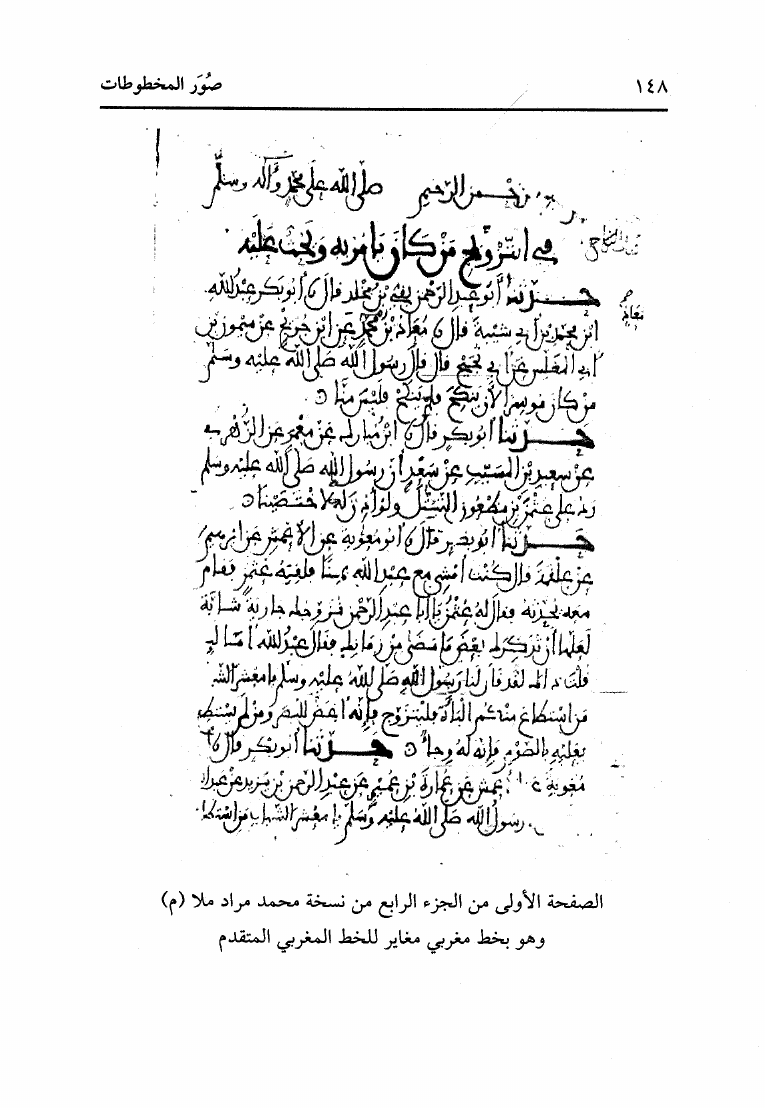 صُوَر المخطوطات
١٤٨
الرحيم صلى الله على محمد وآله وسلم
في التزويج من كان يأمر به ويحث عليه
حدثنا أبو عبد الرحمن بقي بن مخلد قال نا أبو بكر عبد الله
ابن محمد بن أبي شيبة قال نا معاذ بن عن ابن جريج عن ميمون بن
أبي المغلس عن أبي نجيح قال قال رسول الله صلى الله عليه وسلم
من كان موسرا لأن ينكح فلم ينكح فليس منا
حدثنا أبو بكر قال نا ابن مبارك عن معمر عن الزهري
عن سعيد بن المسيب عن سعد أن رسول الله صلى الله عليه وسلم
رد على عثمن بن مظعون التبتل ولو أذن له لاختصينا
حدثنا أبو بكر قال نا أبو معوية عن الأعمش عن إبرهيم
عن علقمة قال كنت أمشي مع عبد الله بمنا فلقيه عثمن فقام
معه يحدثه فقال له عثمن يا أبا عبد الرحمن جارية شابة
لعلها أن تذكرك بعض ما مضى من زمانك فقال عبد الله أما
قلت ذاك لقد قال لنا رسول الله صلى الله عليه وسلم يا معشر
من استطاع منكم الباءة فليتزوج فإنه أغض للبصر ومن لم يستطع
فعليه بالصوم فإنه له وجاء حدثنا أبو بكر قال نا
معوية عن عن عمارة بن عمير عن عبد الرحمن بن يزيد عن
رسول الله صلى الله عليه وسلم يا معشر الشباب من
الصفحة الأولى من الجزء الرابع من نسخة محمد مراد ملا (م)
وهو بخط مغربي مغاير للخط المغربي المتقدم